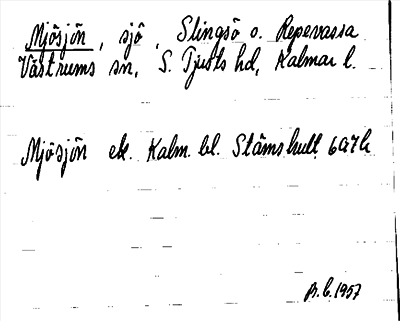 Mjösjön, sjö, Slingsö o. Repevassa
Västrums sn, S. Tjusts hd, Kalmar l.
Mjösjön ek. Kalm. bl. Stämshult 6G7h
B.L. 1957